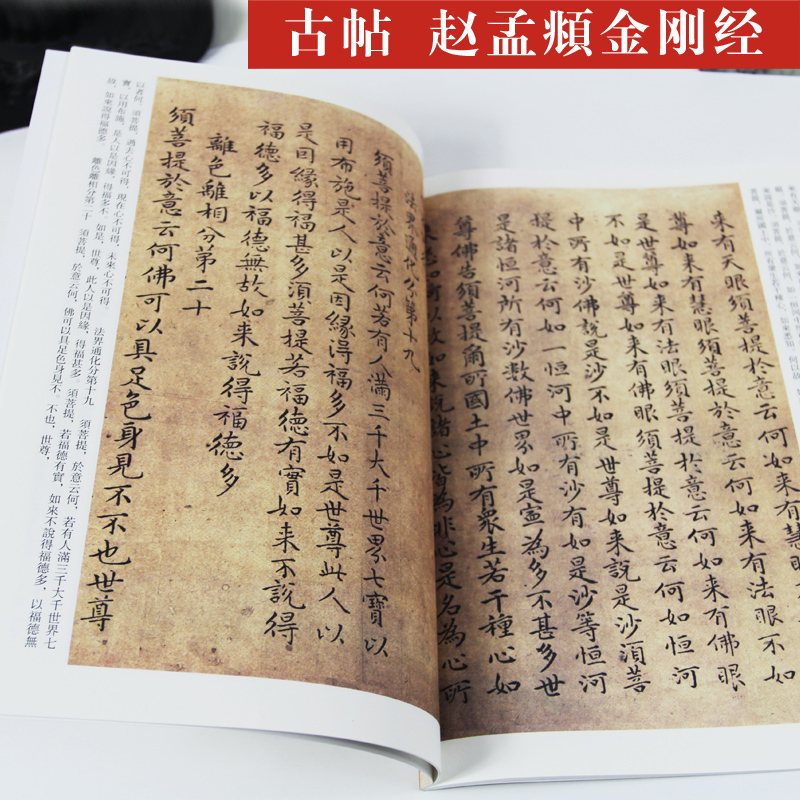 古帖 赵孟頫金刚经
来有天眼須菩提於意云何如来有慧眼
尊如来有慧眼須菩提於意云何如来有法眼不如
是世尊如来有法眼須菩提於意云何如来有佛眼
不如是世尊如来有佛眼須菩提於意云何如恒河
中所有沙佛說是沙不如是世尊如来說是沙須菩
提於意云何如一恒河中所有沙有如是沙等恒河
是諸恒河所有沙數佛世界如是寧為多不甚多世
尊佛告須菩提爾所國土中所有衆生若干種心如
来悉知何以故如来說諸心皆為非心是名為心所
法界通化分第十九
須菩提於意云何若有人滿三千大千世界七寶以
用布施是人以是因緣得福多不如是世尊此人以
是因緣得福甚多須菩提若福德有實如来不說得
福德多以福德無故如来說得福德多
離色離相分第二十
須菩提於意云何佛可以具足色身見不不也世尊
以者何。須菩提，過去心不可得，現在心不可得，未來心不可得。 法界通化分第十九 須菩提，於意云何，若有人滿三千大千世界七
寶，以用布施，是人以是因緣，得福多不。如是，世尊，此人以是因緣，得福甚多。須菩提，若福德有實，如來不說得福德多，以福德無
故，如來說得福德多。 離色離相分第二十 須菩提，於意云何，佛可以具足色身見不。不也，世尊，